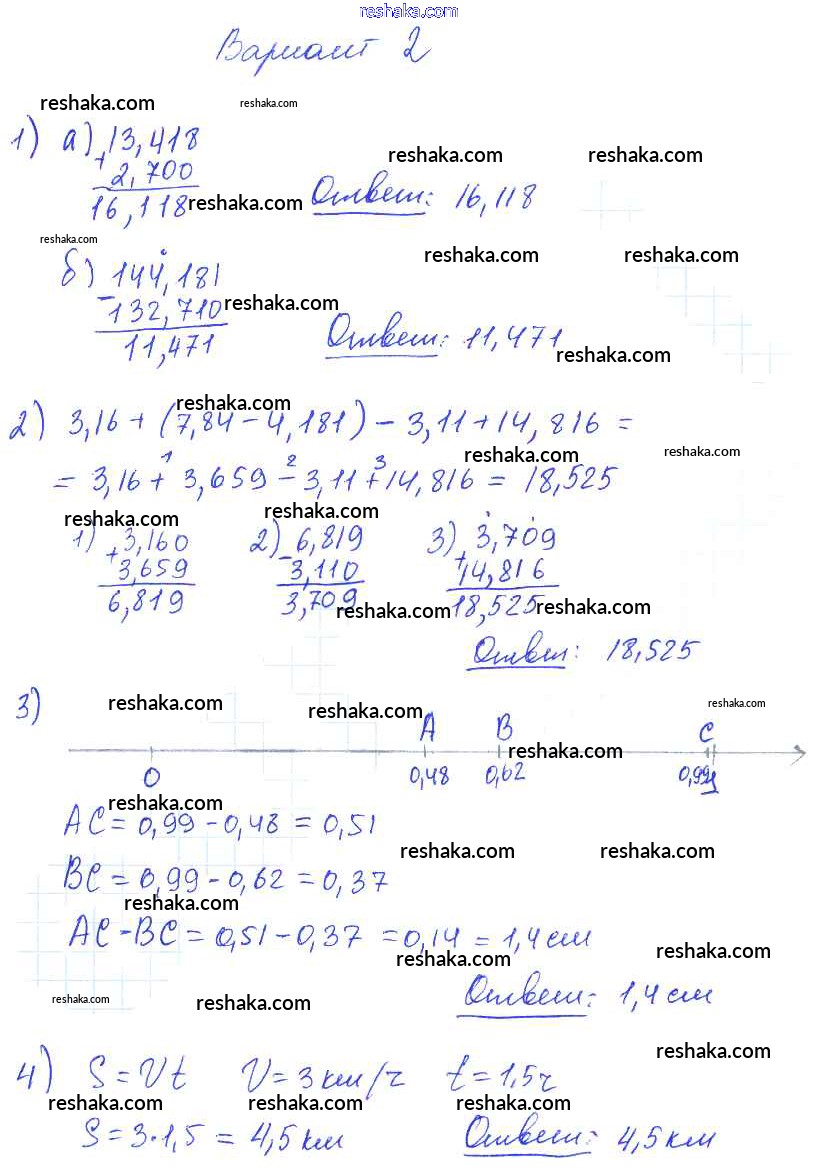 reshaka.com
Вариант 2
reshaka.com reshaka.com
1) а) 13,418
reshaka.com reshaka.com
+ 2,700
16,118 reshaka.com Ответ: 16,118
reshaka.com
reshaka.com reshaka.com
б) 144,181
- 132,710 reshaka.com
11,471 Ответ: 11,471
reshaka.com
reshaka.com
2) 3,16 + (7,84 - 4,181) - 3,11 + 14,816 =
reshaka.com reshaka.com
1 2 3
= 3,16 + 3,659 - 3,11 + 14,816 = 18,525
reshaka.com reshaka.com
1) 3,160 2) 6,819 3) 3,709
+ 3,659 - 3,110 + 14,816
6,819 3,709 reshaka.com 18,525 reshaka.com
Ответ: 18,525
3) reshaka.com reshaka.com reshaka.com
A B C
reshaka.com
0 0,48 0,62 0,99 1
reshaka.com
AC = 0,99 - 0,48 = 0,51
reshaka.com reshaka.com
BC = 0,99 - 0,62 = 0,37
reshaka.com
AC - BC = 0,51 - 0,37 = 0,14 = 1,4 см
reshaka.com reshaka.com
reshaka.com reshaka.com Ответ: 1,4 см
reshaka.com
4) S = Vt V = 3 км/ч t = 1,5 ч
reshaka.com reshaka.com reshaka.com
S = 3·1,5 = 4,5 км Ответ: 4,5 км